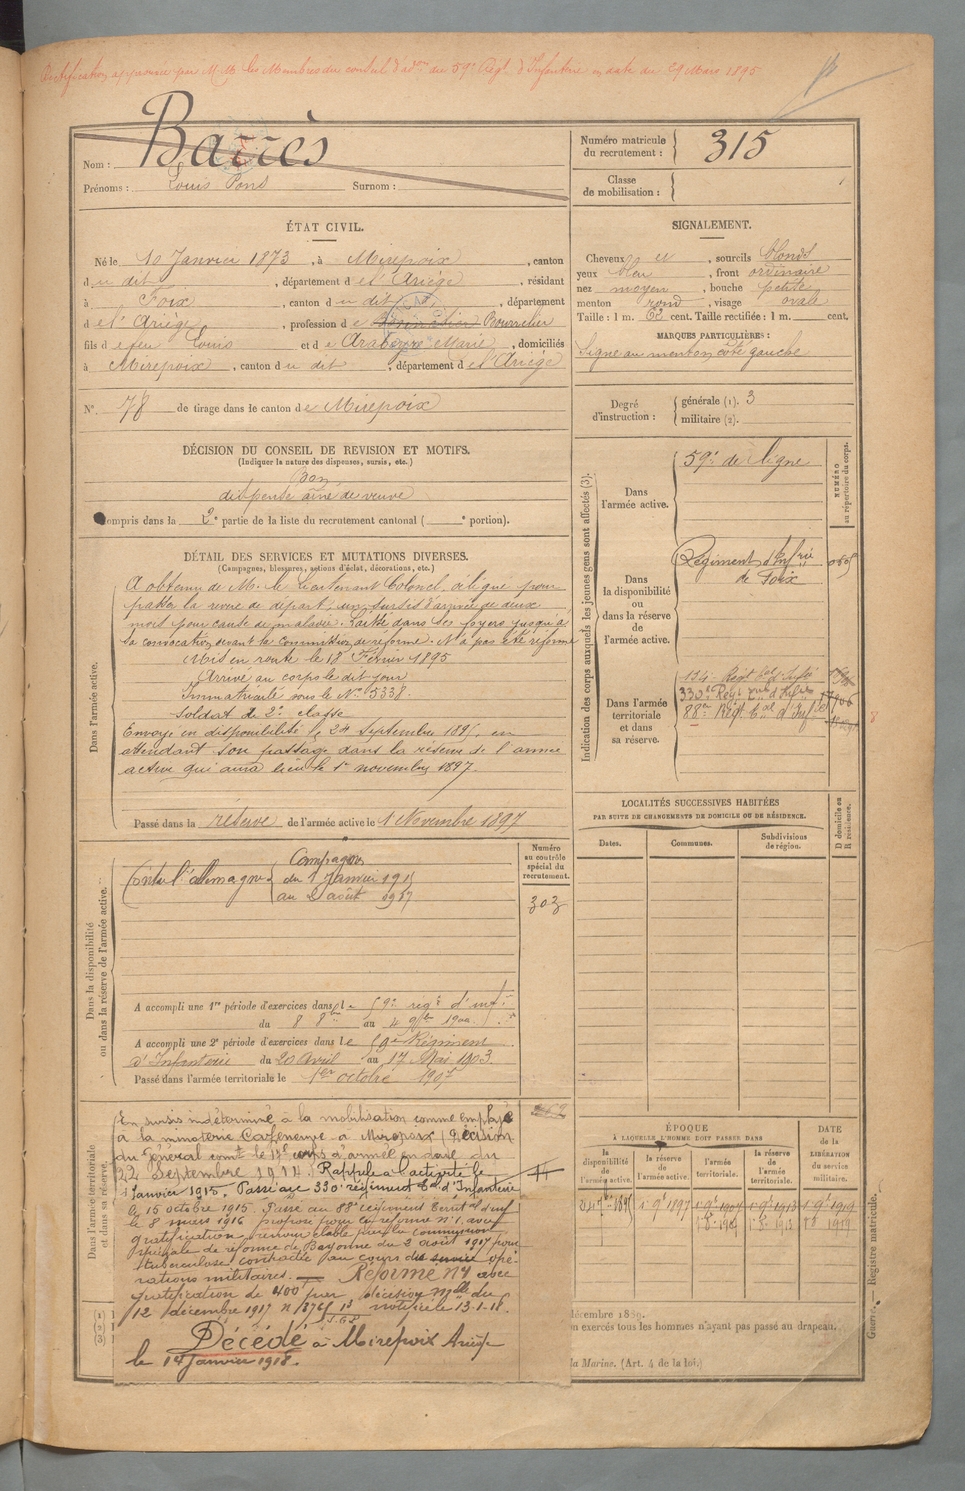 Rectification approuvée par M.M. les Membres du conseil d'adon du 59e Régt d'Infanterie en date du 29 Mars 1895
Nom : Barrès
Prénoms : Louis Pons Surnom :
Numéro matricule du recrutement : 315
Classe de mobilisation :
ÉTAT CIVIL.
Né le 10 Janvier 1873, à Mirepoix, canton
du dit, département de l'Ariège, résidant
à Foix, canton du dit, département
de l'Ariège, profession de Bourrelier
fils de feu Louis et de Marie, domiciliés
à Mirepoix, canton du dit, département de l'Ariège
N° 78 de tirage dans le canton de Mirepoix
SIGNALEMENT.
Cheveux et, sourcils blonds
yeux bleu, front ordinaire
nez moyen, bouche petite
menton rond, visage ovale
Taille : 1 m. 62 cent. Taille rectifiée : 1 m. cent.
MARQUES PARTICULIÈRES :
Signe au menton côté gauche
Degré d'instruction : générale (1). 3
militaire (2).
DÉCISION DU CONSEIL DE REVISION ET MOTIFS.
(Indiquer la nature des dispenses, sursis, etc.)
Bon
dispensé aîné de veuve
Compris dans la 2e partie de la liste du recrutement cantonal ( e portion).
DÉTAIL DES SERVICES ET MUTATIONS DIVERSES.
(Campagnes, blessures, actions d'éclat, décorations, etc.)
Dans l'armée active.
A obtenu de M. le Lieutenant Colonel, délégué pour
passer la revue de départ, un sursis d'arrivée de deux
mois pour cause de maladie. Laissé dans ses foyers jusqu'à
sa convocation devant la Commission de réforme. N'a pas été réformé
Mis en route le 18 Février 1895
Arrivé au corps le dit jour
Immatriculé sous le N° 5338.
Soldat de 2e classe
Envoyé en disponibilité le 24 Septembre 1895, en
attendant son passage dans la réserve de l'armée
active qui aura lieu le 1er novembre 1897.
Passé dans la réserve de l'armée active le 1 Novembre 1897
Indication des corps auxquels les jeunes gens sont affectés (3).
NUMÉRO au répertoire du corps.
Dans l'armée active.
59e de ligne
Dans la disponibilité ou dans la réserve de l'armée active.
Régiment d'Infrie
de Foix
Dans l'armée territoriale et dans sa réserve.
134e Régt tal d'Infie
330e Régt d'Infie
88e Régt tal d'Inf
LOCALITÉS SUCCESSIVES HABITÉES
PAR SUITE DE CHANGEMENTS DE DOMICILE OU DE RÉSIDENCE.
Dates. Communes. Subdivisions de région.
D domicile ou R résidence.
Dans la disponibilité ou dans la réserve de l'armée active.
Numéro au contrôle spécial du recrutement.
303
Campagnes
Contre l'Allemagne du 1 Janvier 1915
au 2 août 1917
A accompli une 1re période d'exercices dans le 59e régt d'inf
du 8 8bre au 4 9bre 1900.
A accompli une 2e période d'exercices dans le 59e Régiment
d'Infanterie du 20 Avril au 17 Mai 1903
Passé dans l'armée territoriale le 1er octobre 1907
Dans l'armée territoriale et dans sa réserve.
En sursis indéterminé à la mobilisation comme employé
à la minoterie à Mirepoix (Décision
du Général comt le corps d'armée en date du
22 Septembre 1914). Rappelé à l'activité le
1 Janvier 1915. Passé au 330e régiment tal d'Infanterie
le 15 octobre 1915. Passé au 88e régiment territal d'inf
le 8 mars 1916 proposé pour la réforme n° 1, avec
gratification renouvelable par la commission
spéciale de réforme de Bayonne du 2 août 1917 pour
tuberculose contractée au cours des opé-
rations militaires. Réformé N°1 avec
gratification de 400f par décision mlle du
12 décembre 1917 notifiée le 13.1.18.
Décédé à Mirepoix Ariège
le 14 Janvier 1918.
ÉPOQUE
À LAQUELLE L'HOMME DOIT PASSER DANS
la disponibilité de l'armée active.
la réserve de l'armée active.
l'armée territoriale.
la réserve de l'armée territoriale.
DATE de la LIBÉRATION du service militaire.
24 7bre 1895
1 9b 1897
décembre 1889.
n exercés tous les hommes n'ayant pas passé au drapeau.
la Marine. (Art. 4 de la loi.)
Guerre. — Registre matricule.